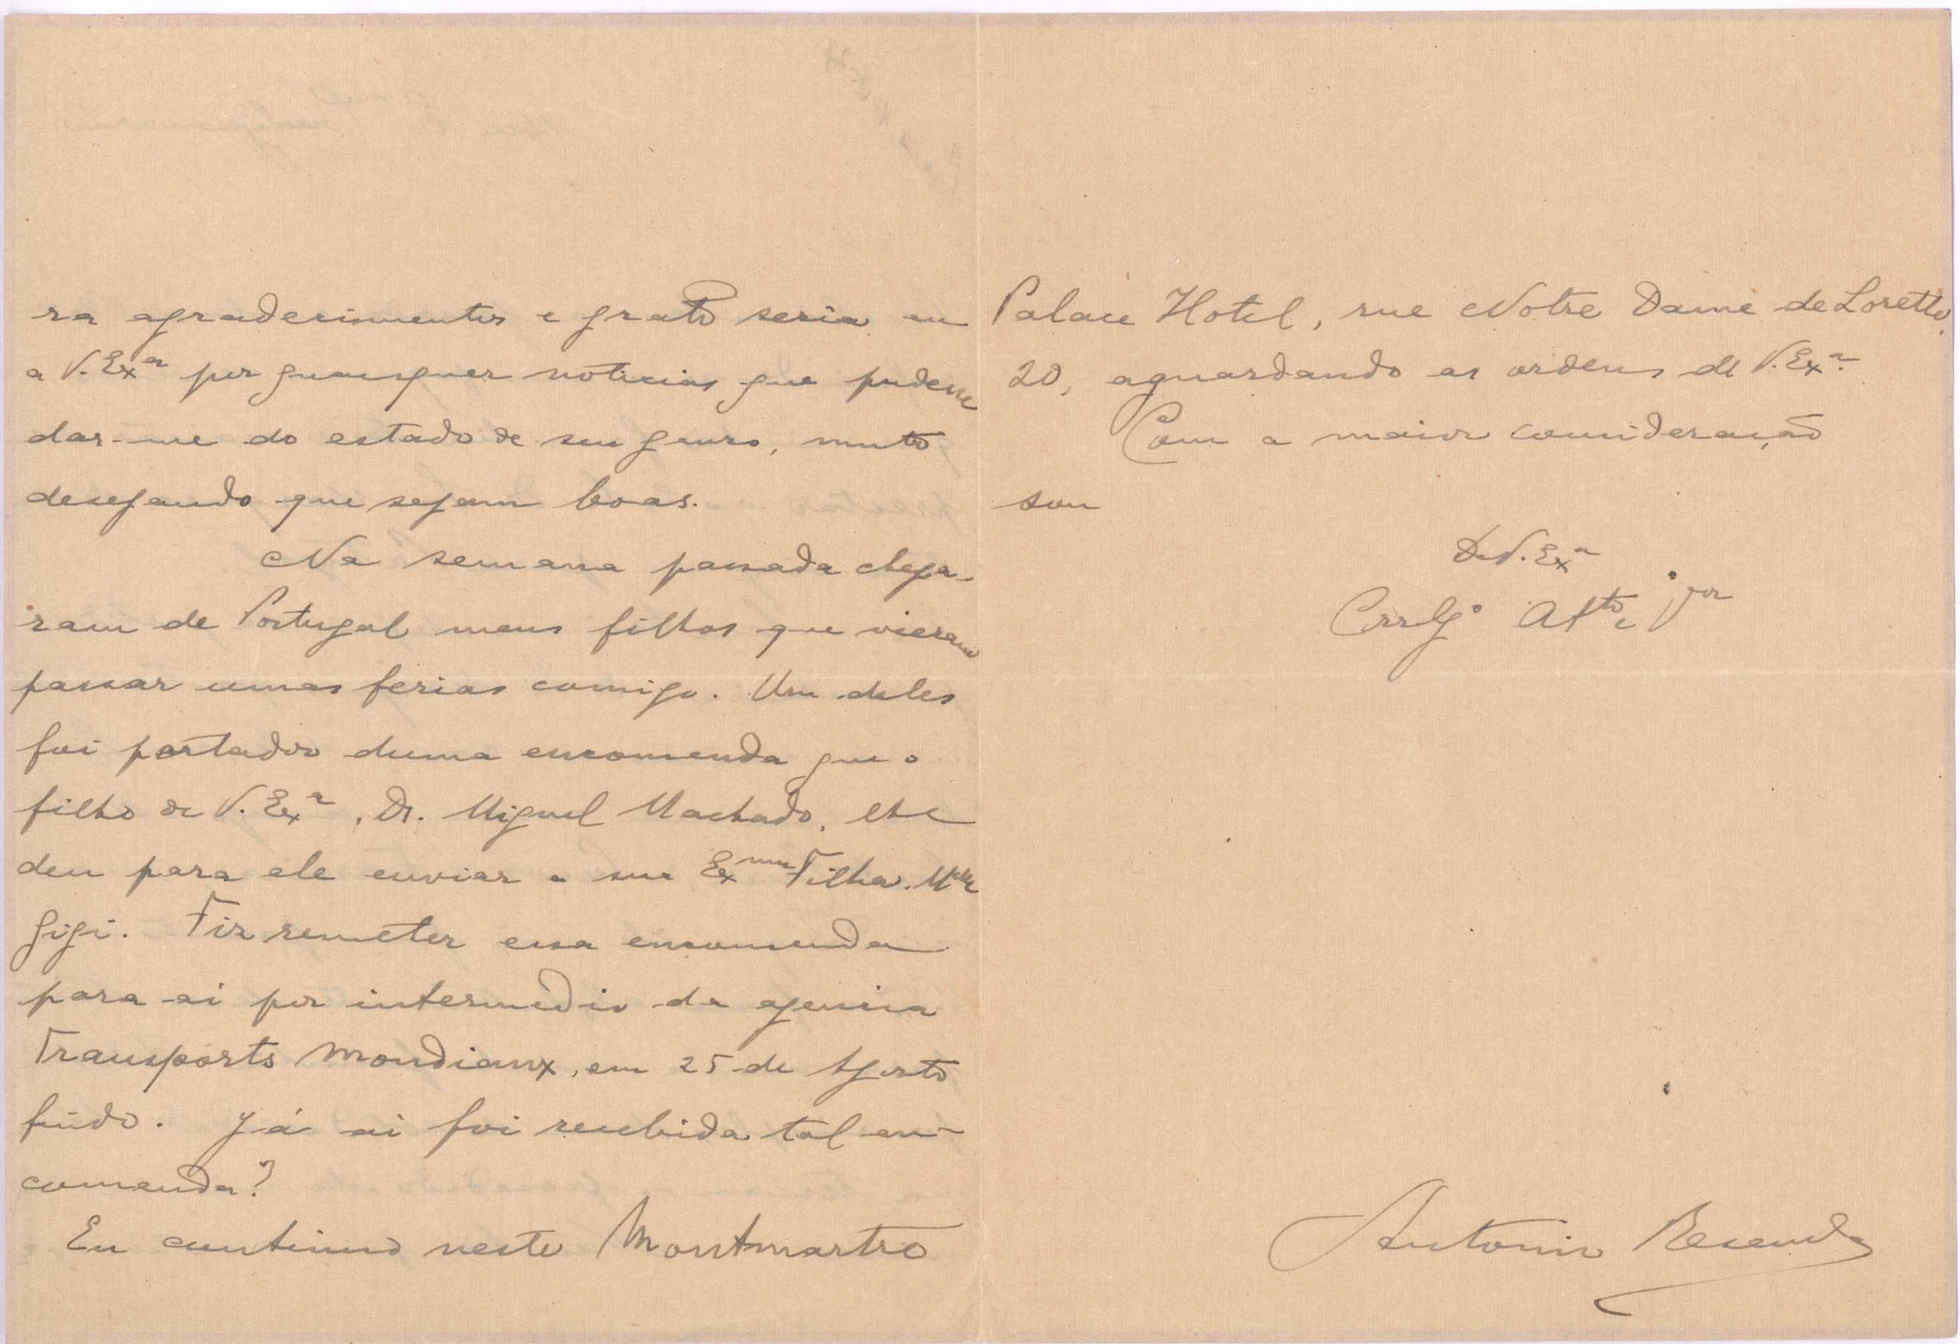 ra agradecimentos e grato seria eu
a V. Exª por quaisquer noticias que pudesse
dar-me do estado de seu genro, muito
desejando que sejam boas.
Na semana passada chega-
ram de Portugal meus filhos que vieram
passar umas ferias comigo. Um deles
foi portador duma encomenda que o
filho de V. Exª, Dr. Miguel Machado, lhe
deu para ele enviar a sua Exma Filha, Melle
Gigi. Fiz remeter essa encomenda
para ai por intermedio da agencia
Transports Mondiaux, em 25 de Agosto
findo. Já ai foi recebida tal en-
comenda?
Eu continuo neste Montmartre
Palace Hotel, rue Notre Dame de Lorette,
20, aguardando as ordens de V. Exª.
Com a maior consideração
sou
De V. Exª
Atto e
Antonio Resende